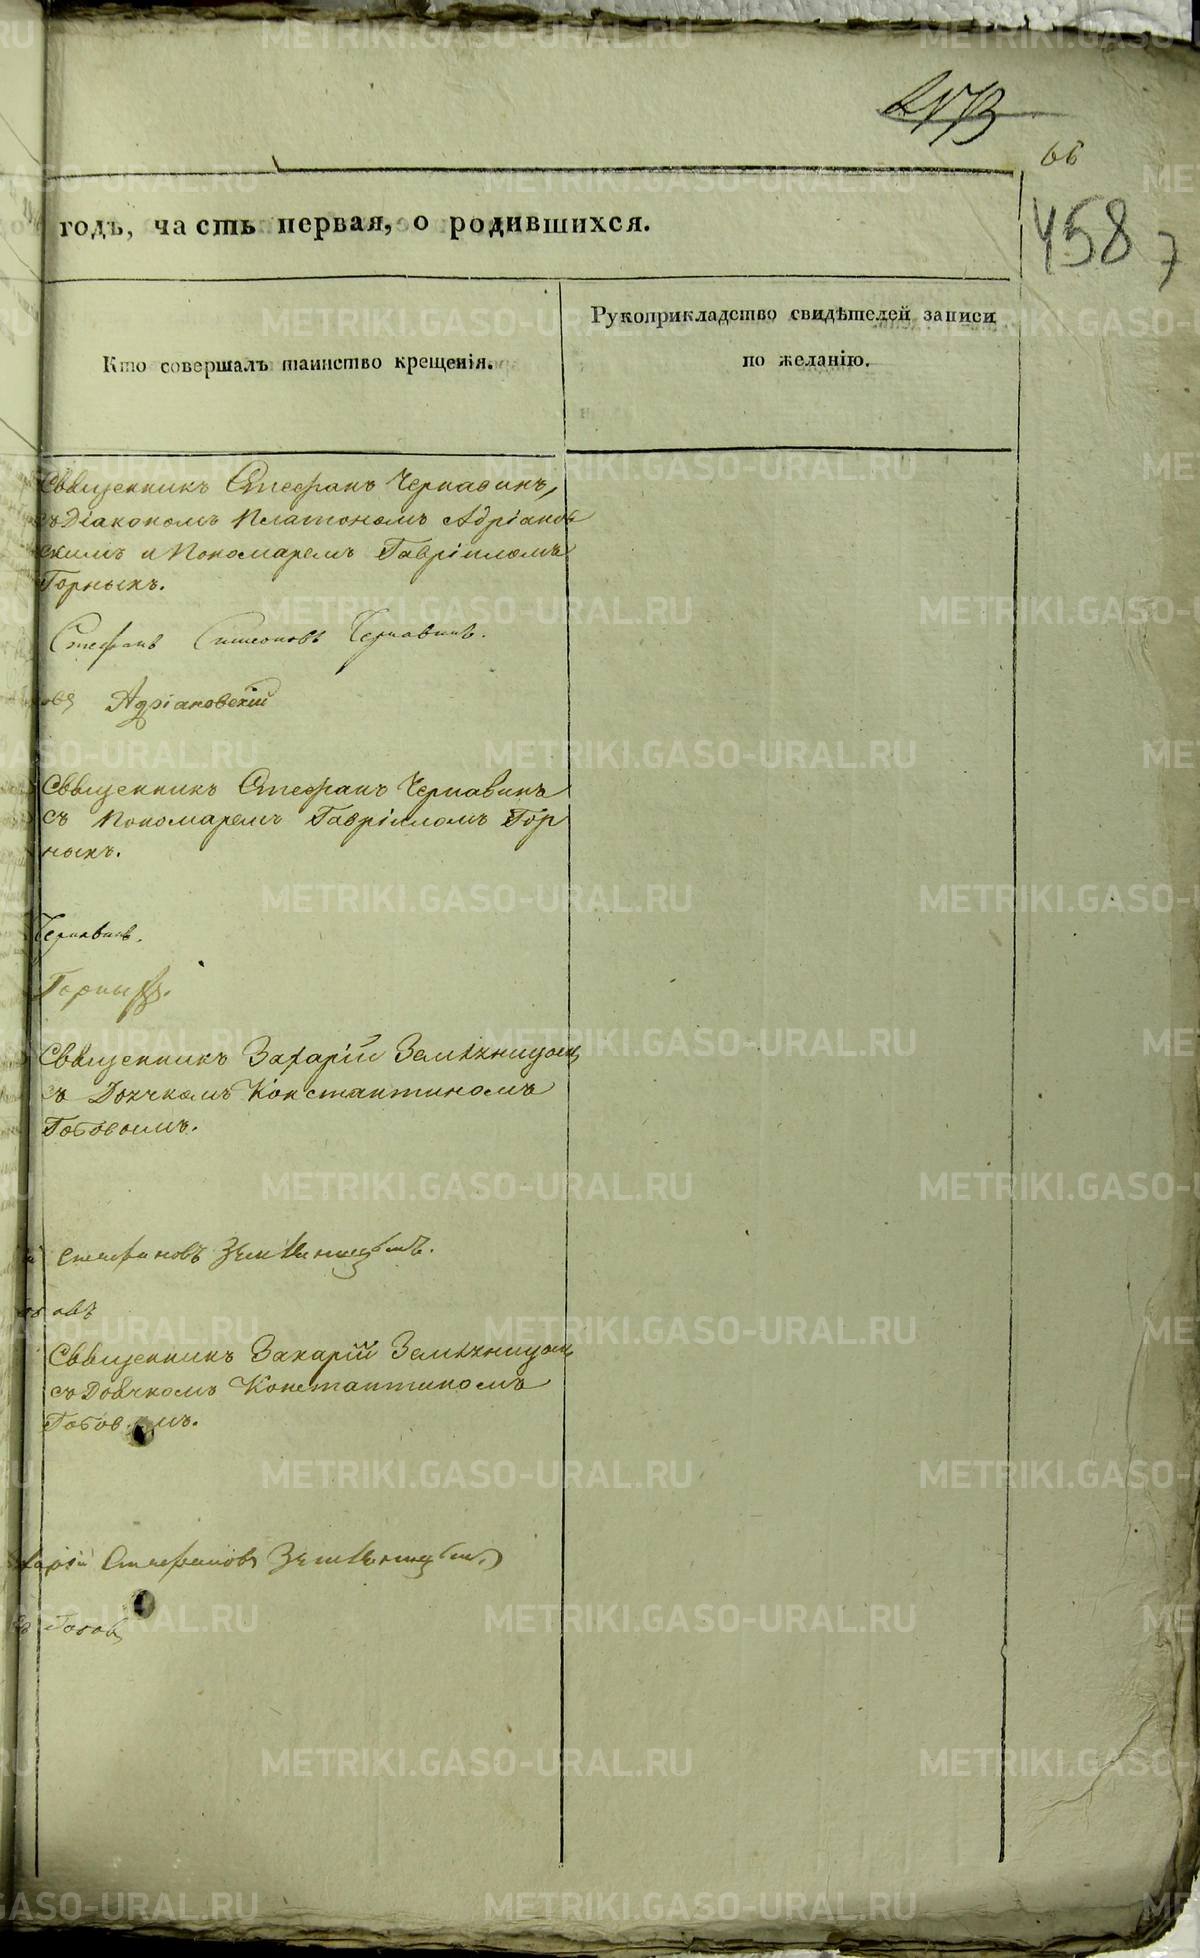 66
458
7
годъ, часть первая, о родившихся.
Кто совершалъ таинство крещенія.
Рукоприкладство свидѣтелей записи
по желанію.
Священникъ Стефанъ Чернавинъ,
съ Діакономъ Платономъ Адріанов
скимъ и Пономаремъ Гавріиломъ
Горныхъ.
Стефанъ Симеоновъ Чернавинъ.
Адріановскій
Священникъ Стефанъ Чернавинъ
съ Пономаремъ Гавріиломъ Гор
ныхъ.
Чернавинъ.
Горныхъ.
Священникъ Захарій Земляницын
съ Дьячкомъ Константиномъ
Готовомъ.
Стефановъ Земляницынъ.
овъ
Священникъ Захарій Земляницын
съ Дьячкомъ Константиномъ
Стефановъ Земляницынъ
METRIKI.GASO-URAL.RU